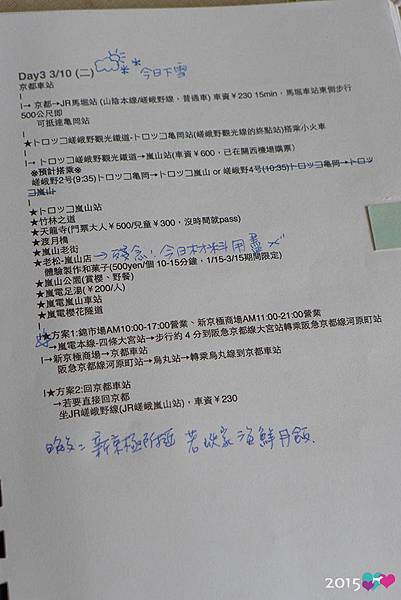 Day3 3/10 (二) 今日下雪
京都車站
I
I→ 京都→JR馬堀站 (山陰本線/嵯峨野線、普通車) 車資￥230 15min、馬堀車站東側步行
500公尺即
可抵達龜岡站
I
★トロッコ嵯峨野觀光鐵道-トロッコ亀岡站(嵯峨野觀光線的終點站)搭乘小火車
I
I→ トロッコ嵯峨野觀光鐵道→嵐山站(車資￥600，已在關西機場購票)
※預計搭乘※
嵯峨野2号(9:35)トロッコ亀岡→トロッコ嵐山 or 嵯峨野4号(10:35)トロッコ亀岡→トロッ
コ嵐山
I
★トロッコ嵐山站
★竹林之道
★天龍寺(門票大人￥500/兒童￥300，沒時間就pass)
★渡月橋
★嵐山老街
★老松-嵐山店→殘念！今日材料用盡
體驗製作和菓子(500yen/個 10-15分鐘，1/15-3/15期間限定)
★嵐山公園(賞櫻、野餐)
★嵐電足湯(￥200/人)
★嵐電嵐山車站
★嵐電櫻花隧道
I
I★方案1:錦市場AM10:00-17:00營業、新京極商場AM11:00-21:00營業
→嵐電本線-四條大宮站→步行約 4 分到阪急京都線大宮站轉乘阪急京都線河原町站
I→新京極商場→京都車站
阪急京都線河原町站→烏丸站→轉乘烏丸線到京都車站
I★方案2:回京都車站
→若要直接回京都
坐JR嵯峨野線(JR嵯峨嵐山站)，車資￥230
晚飯：新京極附近 若狹家海鮮丼飯、
2015